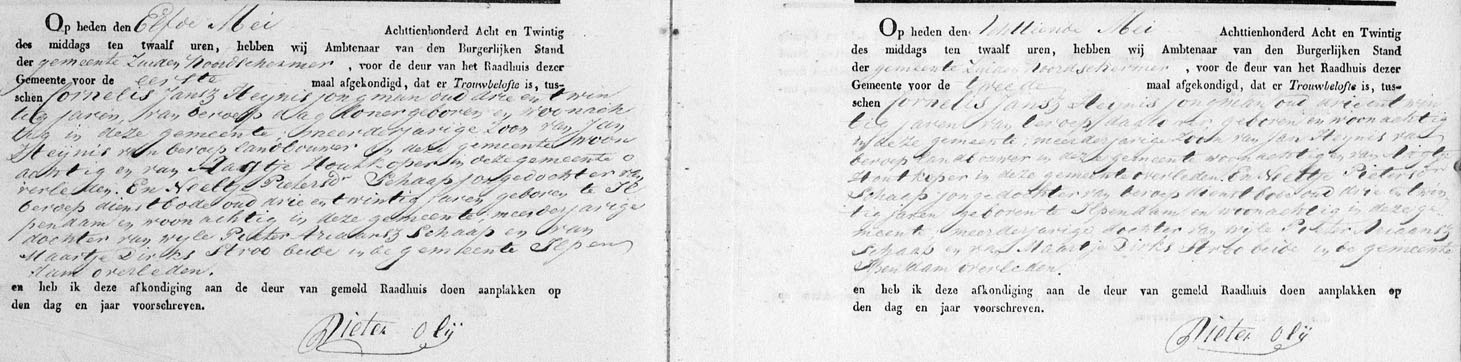 Op heden den Elfde Mei Achttienhonderd Acht en Twintig
des middags ten twaalf uren, hebben wij Ambtenaar van den Burgerlijken Stand
der gemeente Zuid en Noordschermer, voor de deur van het Raadhuis dezer
Gemeente voor de eerste maal afgekondigd, dat er Trouwbelofte is, tus-
schen Cornelis Jansz Heynis jongman oud drie en twin
tig jaren, van beroep dag loner geboren en woonach
tig in deze gemeente, meerderjarige zoon van Jan
Heynis van beroep landbouwer in deze gemeente woon
achtig en van Aagtje Houtkoper in deze gemeente o
verleden. En Neeltje Pietersdr Schaap jonge dochter van
beroep dienstbode oud drie en twintig jaren geboren te Il
pendam en woonachtig in deze gemeente, meerderjarige
dochter van wijle Pieter Ariaansz Schaap en van
Maartje Dirks Stroo beide in de gemeente Ilpen
dam overleden.
en heb ik deze afkondiging aan de deur van gemeld Raadhuis doen aanplakken op
den dag en jaar voorschreven.
Pieter Olij
Op heden den Achttiende Mei Achttienhonderd Acht en Twintig
des middags ten twaalf uren, hebben wij Ambtenaar van den Burgerlijken Stand
der gemeente Zuid en Noordschermer, voor de deur van het Raadhuis dezer
Gemeente voor de tweede maal afgekondigd, dat er Trouwbelofte is, tus-
schen Cornelis Jansz Heynis jongman oud drie en twin
tig jaren van beroep dagloner geboren en woonachtig
in deze gemeente, meerderjarige zoon van Jan Heynis van
beroep landbouwer in deze gemeente woonachtig en van Aagtje
Houtkoper in deze gemeente overleden. En Neeltje Pietersdr
Schaap jonge dochter van beroep dienstbode oud drie en twin
tig jaren geboren te Ilpendam en woonachtig in deze ge
meente, meerderjarige dochter van wijle Pieter Ariaansz
Schaap en van Maartje Dirks Stroo beide in de gemeente
Ilpendam overleden.
en heb ik deze afkondiging aan de deur van gemeld Raadhuis doen aanplakken op
den dag en jaar voorschreven.
Pieter Olij